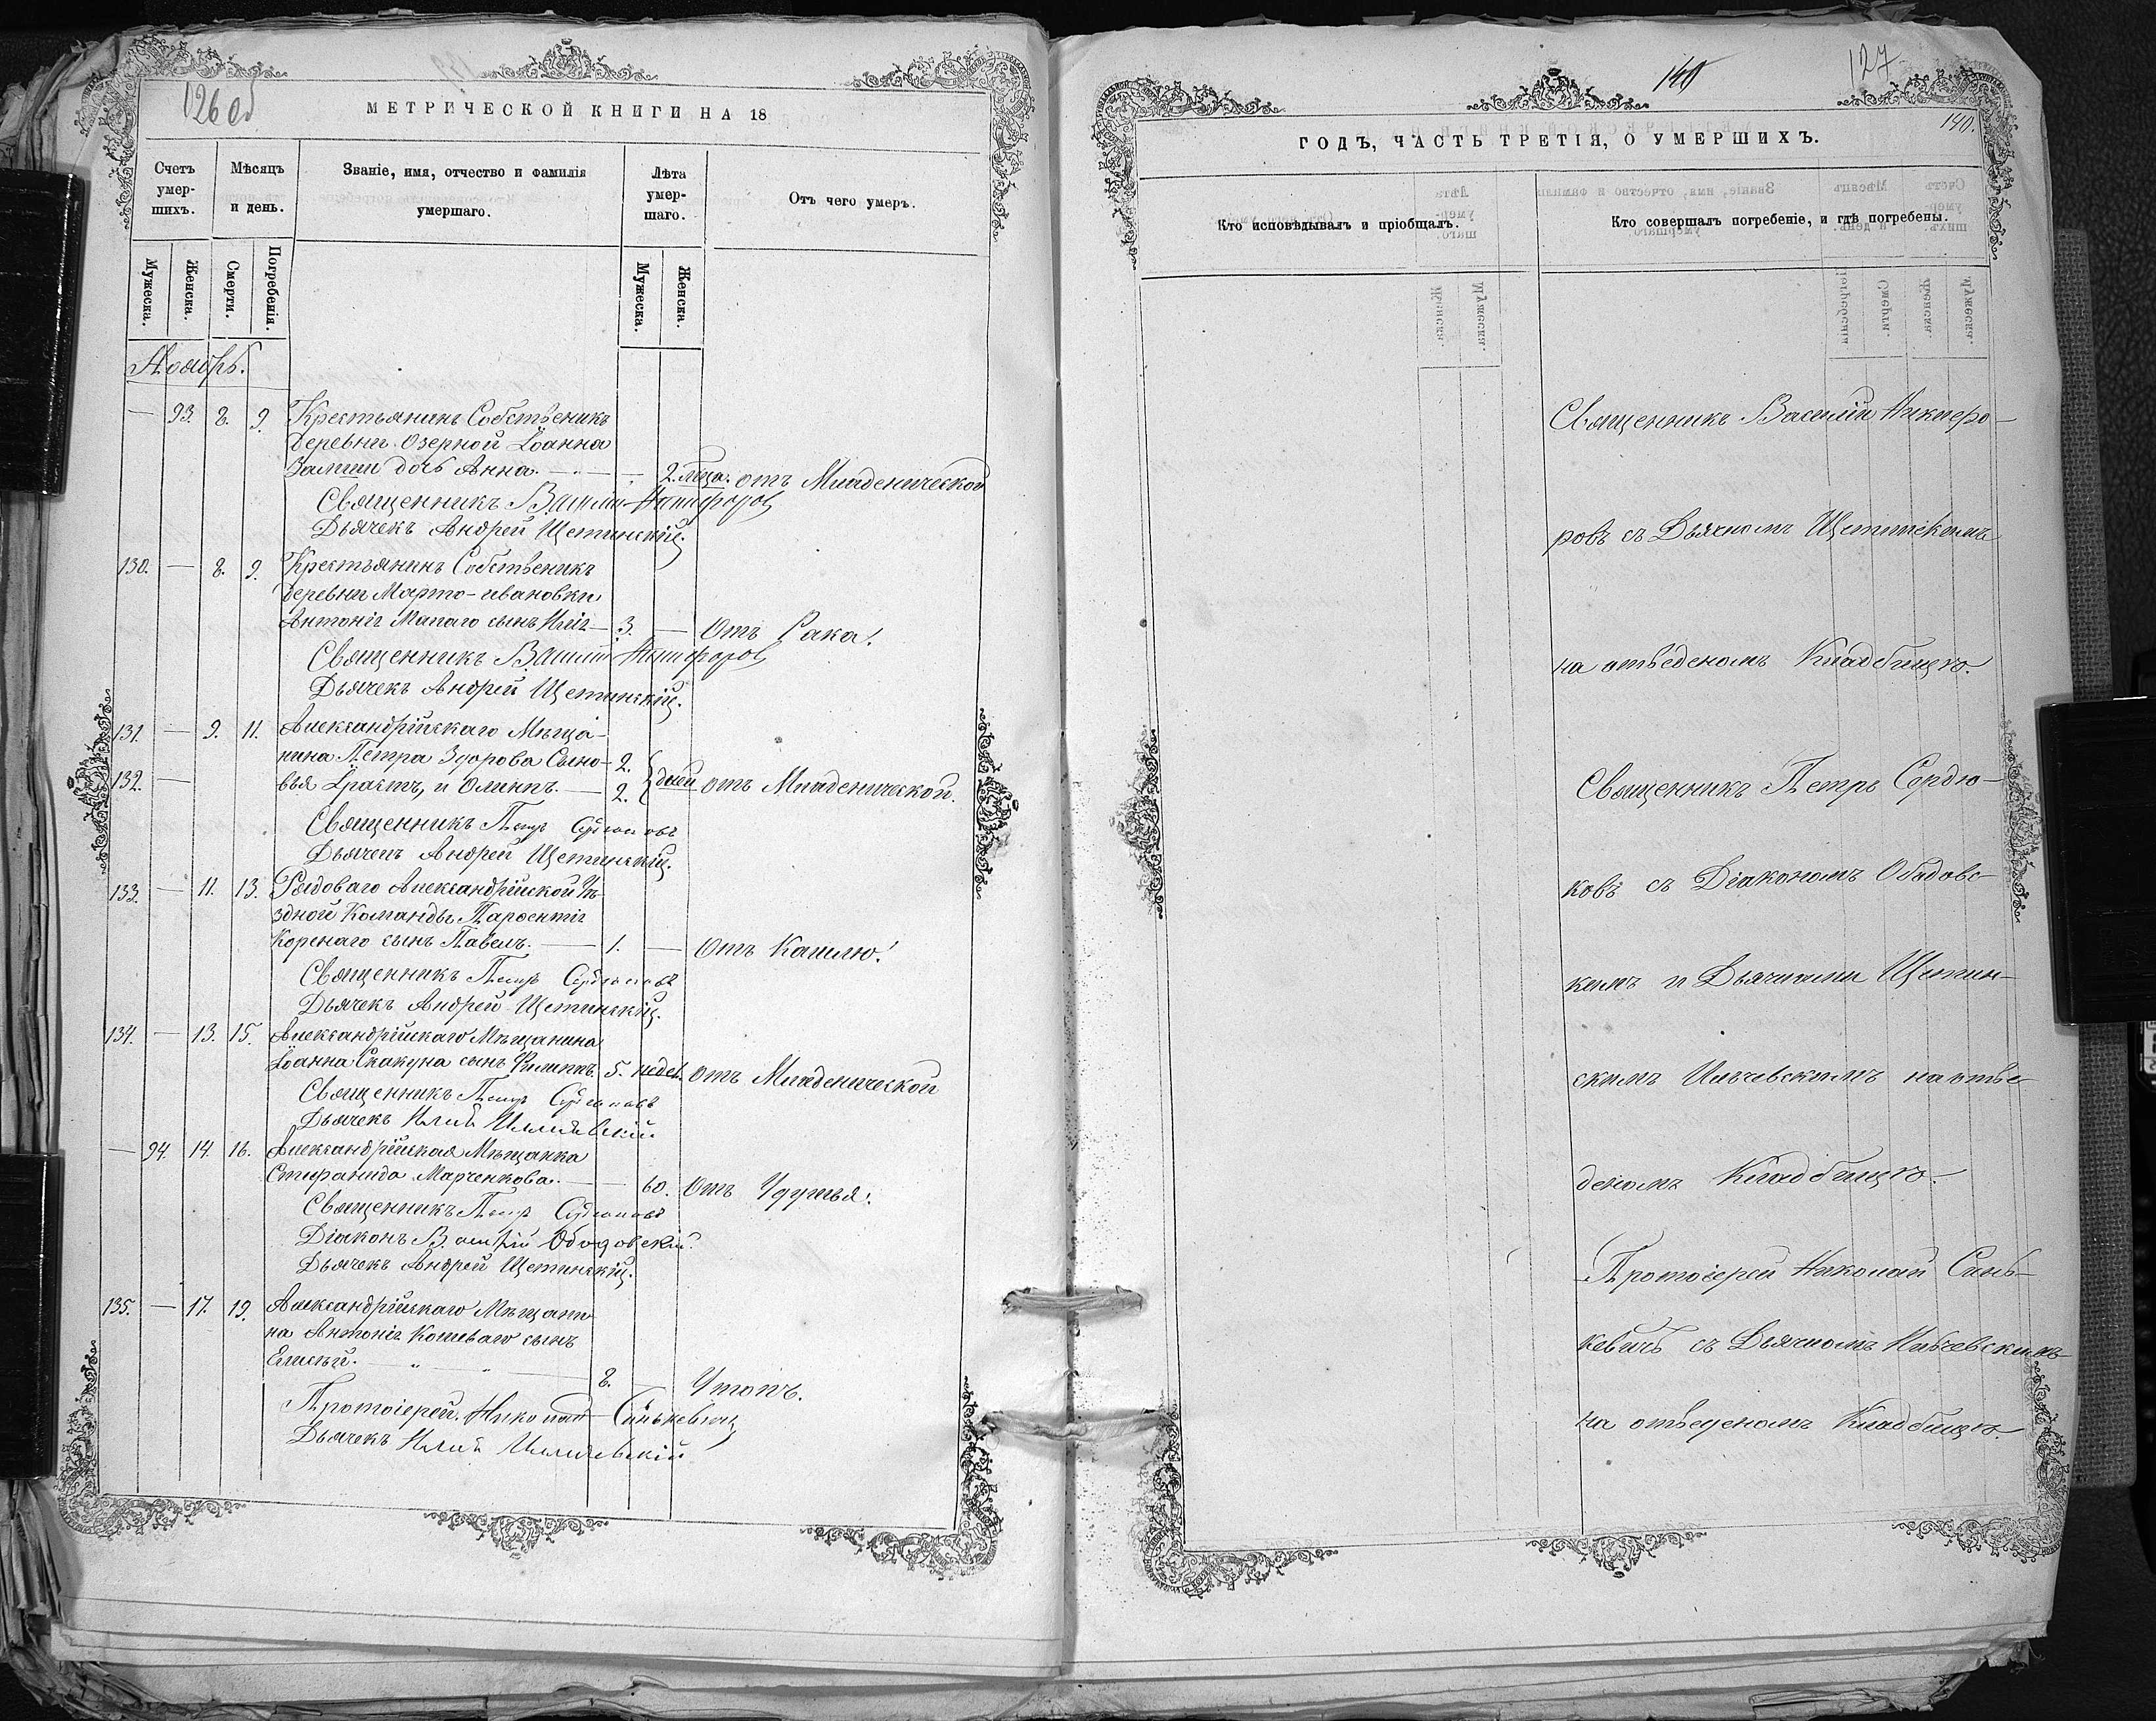 126 об
МЕТРИЧЕСКОЙ КНИГИ НА 18
Счетъ умер-шихъ.
Мѣсяцъ и день.
Званіе, имя, отчество и фамилія умершаго.
Лѣта умер-шаго.
Отъ чего умеръ.
Мужеска.
Женска.
Смерти.
Погребенія.
Мужеска.
Женска.
Ноябрь.
— 93. 8. 9. Крестьянинъ Собственикъ
деревни Озерной Іоанна
дочь Анна. — 2. мца. отъ Младенической
Священникъ Василій Никифоровъ
Дьячекъ Андрей Щетинскій.
130. — 8. 9. Крестьянинъ Собственикъ
деревни Марто-ивановки
Антонія сынъ Илія — 3. — Отъ Рака.
Священникъ Василій Никифоровъ
Дьячекъ Андрей Щетинскій.
131. — 9. 11. Александрійскаго Мѣща-
нина Петра Здорова Сыно- 2.
132. — вья Ерастъ, и Олимпъ. — 2. дней отъ Младенической.
Священникъ Петръ Сердюковъ
Дьячекъ Андрей Щетинскій.
133. — 11. 13. Рядоваго Александрійской Уѣ-
здной Команды Парфентія
Коренаго сынъ Павелъ. — 1. — Отъ Кашлю.
Священникъ Петръ Сердюковъ
Дьячекъ Андрей Щетинскій.
134. — 13. 15. Александрійскаго Мѣщанина
Іоанна Скакуна сынъ Филиппъ. 5. недел. отъ Младенической
Священникъ Петръ Сердюковъ
Дьячекъ Илія
— 94. 14. 16. Александрійская Мѣщанка
Марченкова. — 60. Отъ Удушья.
Священникъ Петръ Сердюковъ
Діаконъ Василій Ободовскій.
Дьячекъ Андрей Щетинскій.
135. — 17. 19. Александрійскаго Мѣщани-
на Антонія Кошеваго сынъ
Елисѣй. — 8. — Утопъ.
Протоіерей Николай Синькевичъ
Дьячекъ Илія
140
127
140.
ГОДЪ, ЧАСТЬ ТРЕТІЯ, О УМЕРШИХЪ.
Кто исповѣдывалъ и пріобщалъ.
Кто совершалъ погребеніе, и гдѣ погребены.
Священникъ Василій Никифо-
ровъ съ Дьячкомъ Щетинскимъ
на отведеномъ Кладбищѣ.
Священникъ Петръ Сердю-
ковъ съ Діакономъ Ободовс-
кимъ и Дьячками Щетин-
скимъ на отве-
деномъ Кладбищѣ.
Протоіерей Николай Синь-
кевичъ съ Дьячкомъ
на отведеномъ Кладбищѣ.